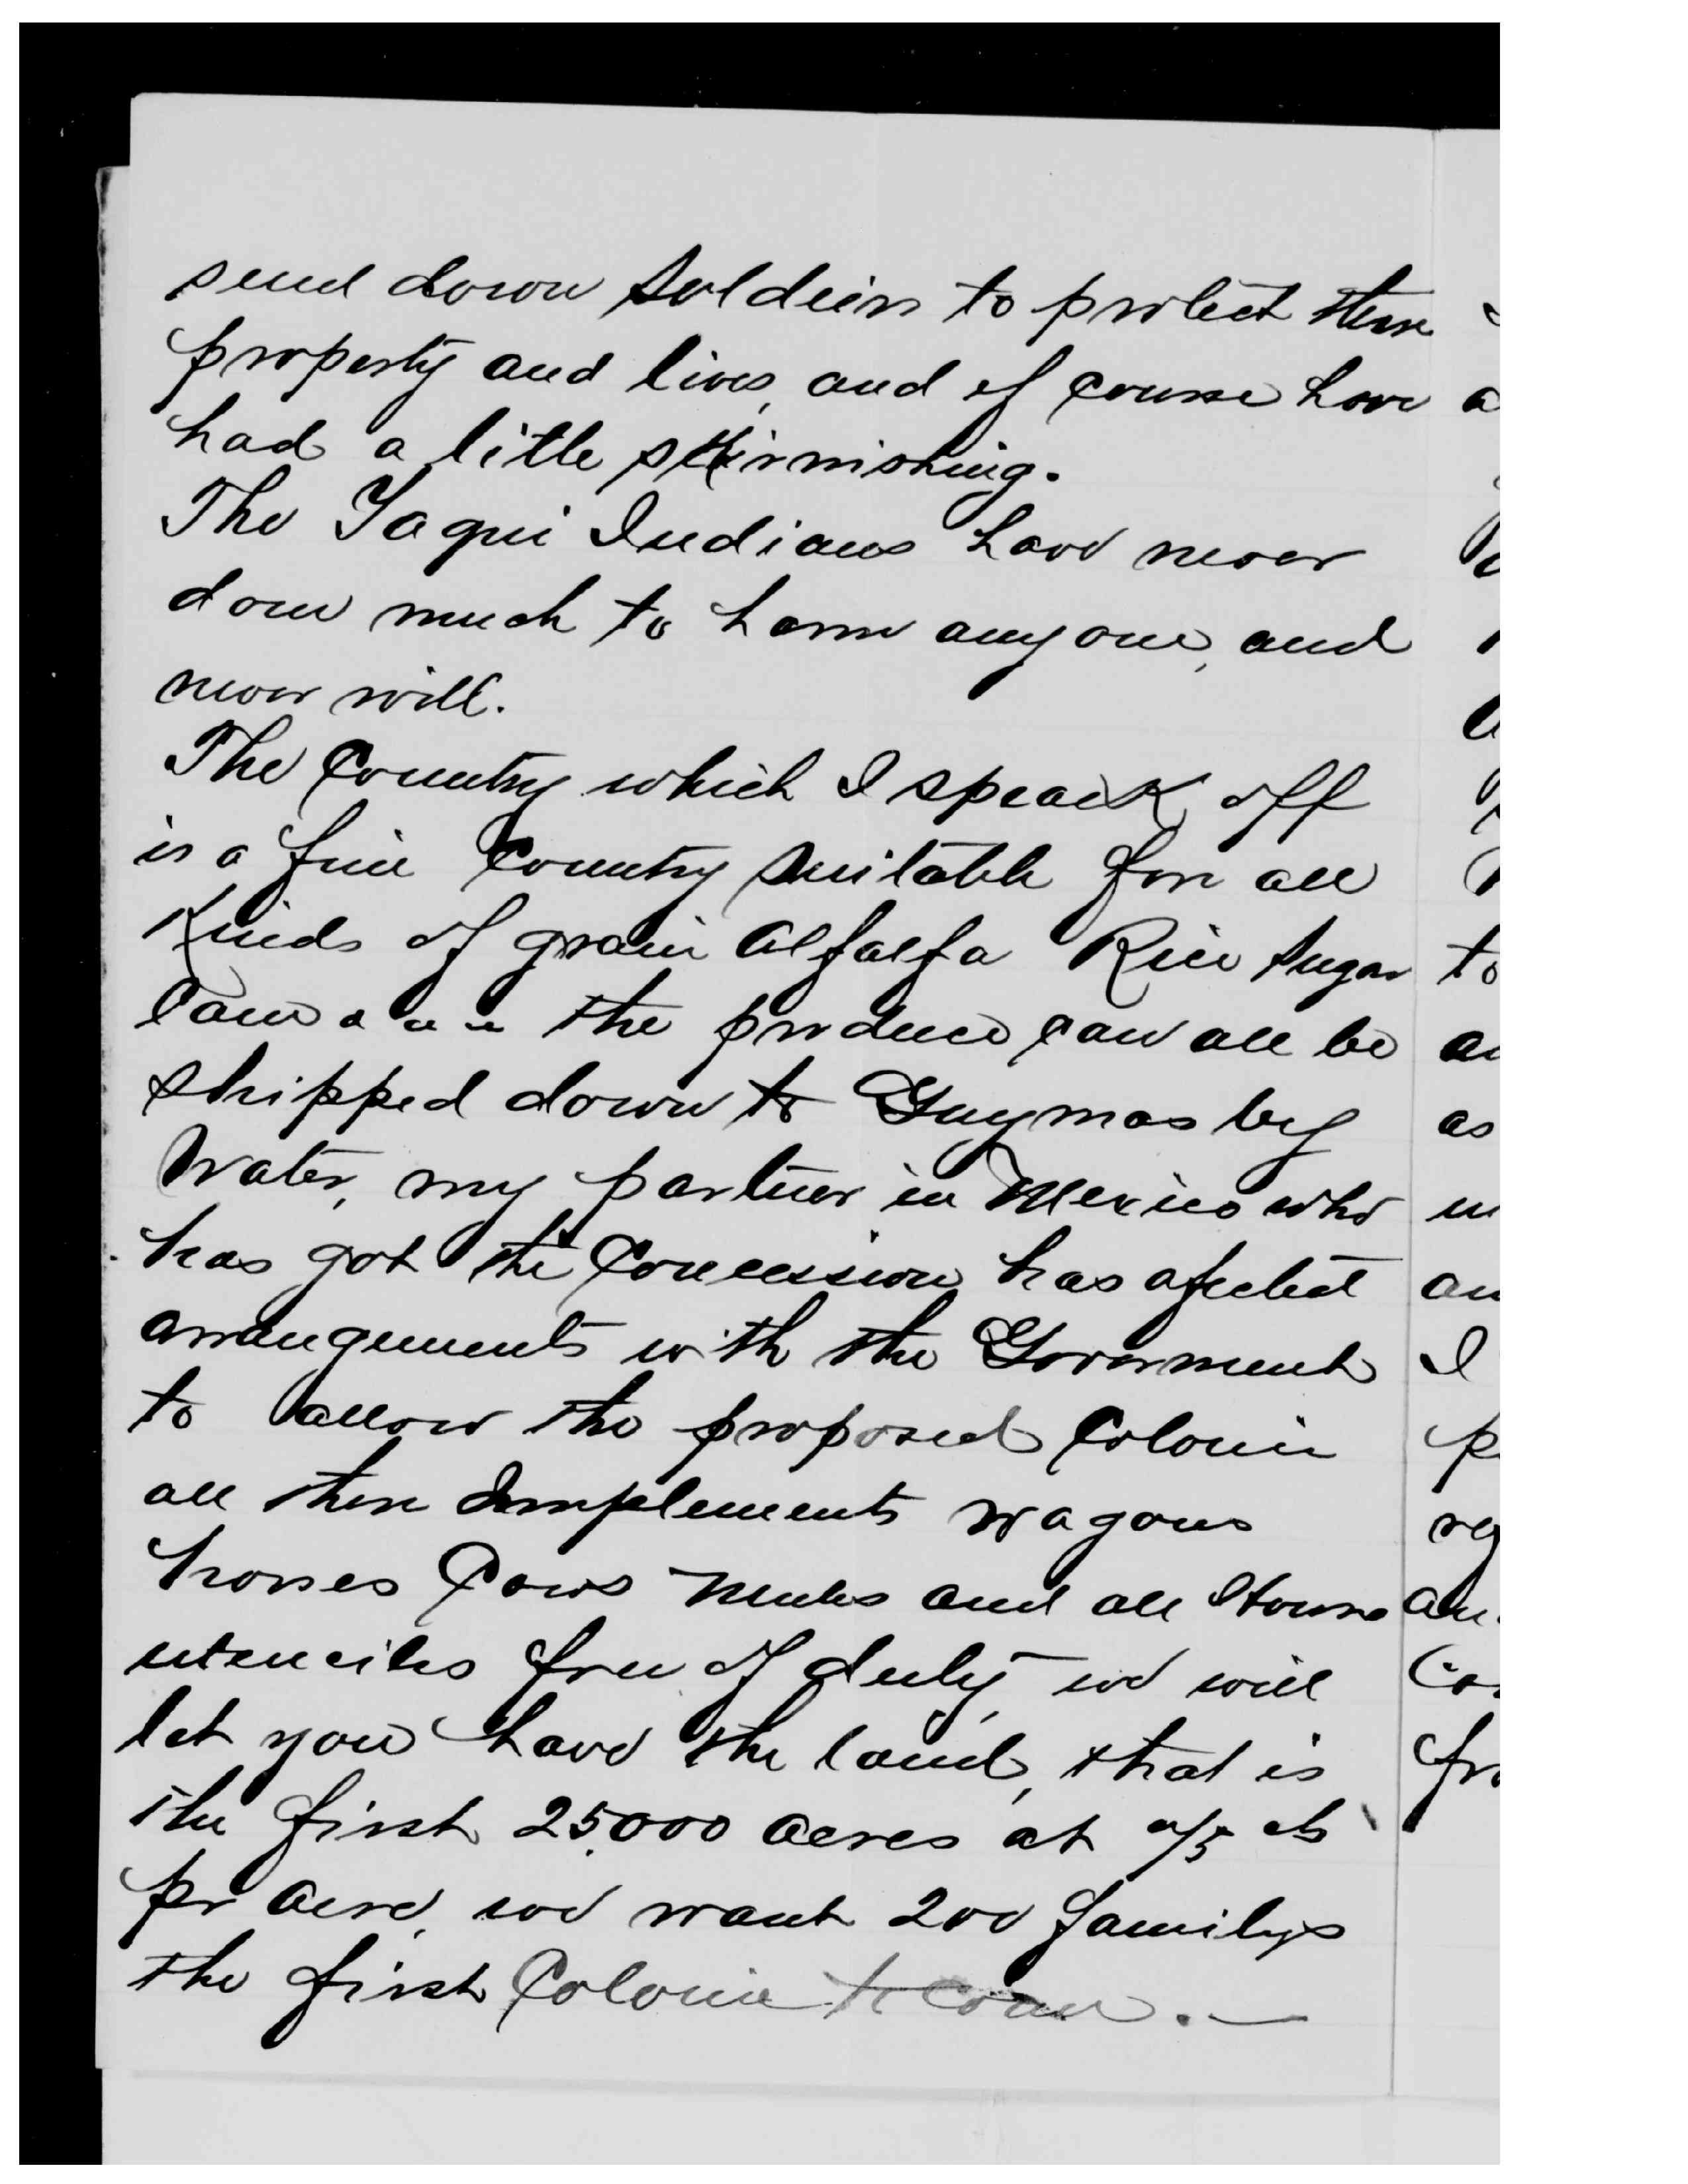 send down Soldiers to protect there
property and lives, and of course have
had a little skirmishing.
The Yaqui Indians have never
done much to harm any one, and
never will.
The Country which I speack off
is a fine Country Suitable for all
Kinds of grain Alfalfa Rice Sugar
Cane a a a the produce can all be
shipped down to Guymas by
Water, my partner in Mexico who
has got the Concession has afected
arrangements with the Goverment
to allow the proposed Colonie
all there Implements wagons
horses Cows Mules and all House
utenciles free of duty, we will
let you have the land, that is
the first 25.000 acres at 75 cts
pr acre, we want 200 familys
the first Colonie to Come. —